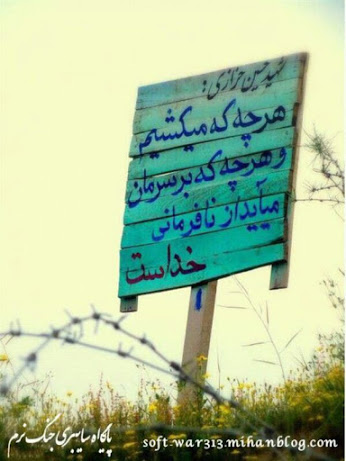 شهید حسین خرازی :
هر چه که میکشیم
و هر چه که بر سرمان
میآید از نافرمانی
خداست
پایگاه سایبری جنگ نرم
soft-war313.mihanblog.com